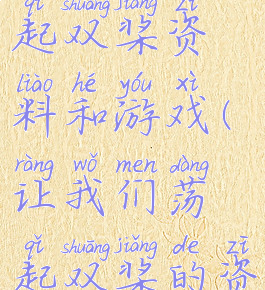 qǐ shuāng jiǎng zī
起双桨资
liào hé yóu xì
料和游戏(
ràng wǒ men dàng
让我们荡
qǐ shuāng jiǎng de zī
起双桨的资